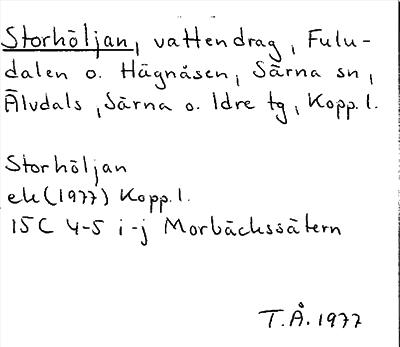 Storhöljan, vattendrag, Fulu-
dalen o. Hägnåsen, Särna sn,
Älvdals, Särna o. Idre tg, Kopp. l.
Storhöljan
ek (1977) Kopp. l.
15C 4-5 i-j Morbäckssätern
T.Å. 1977